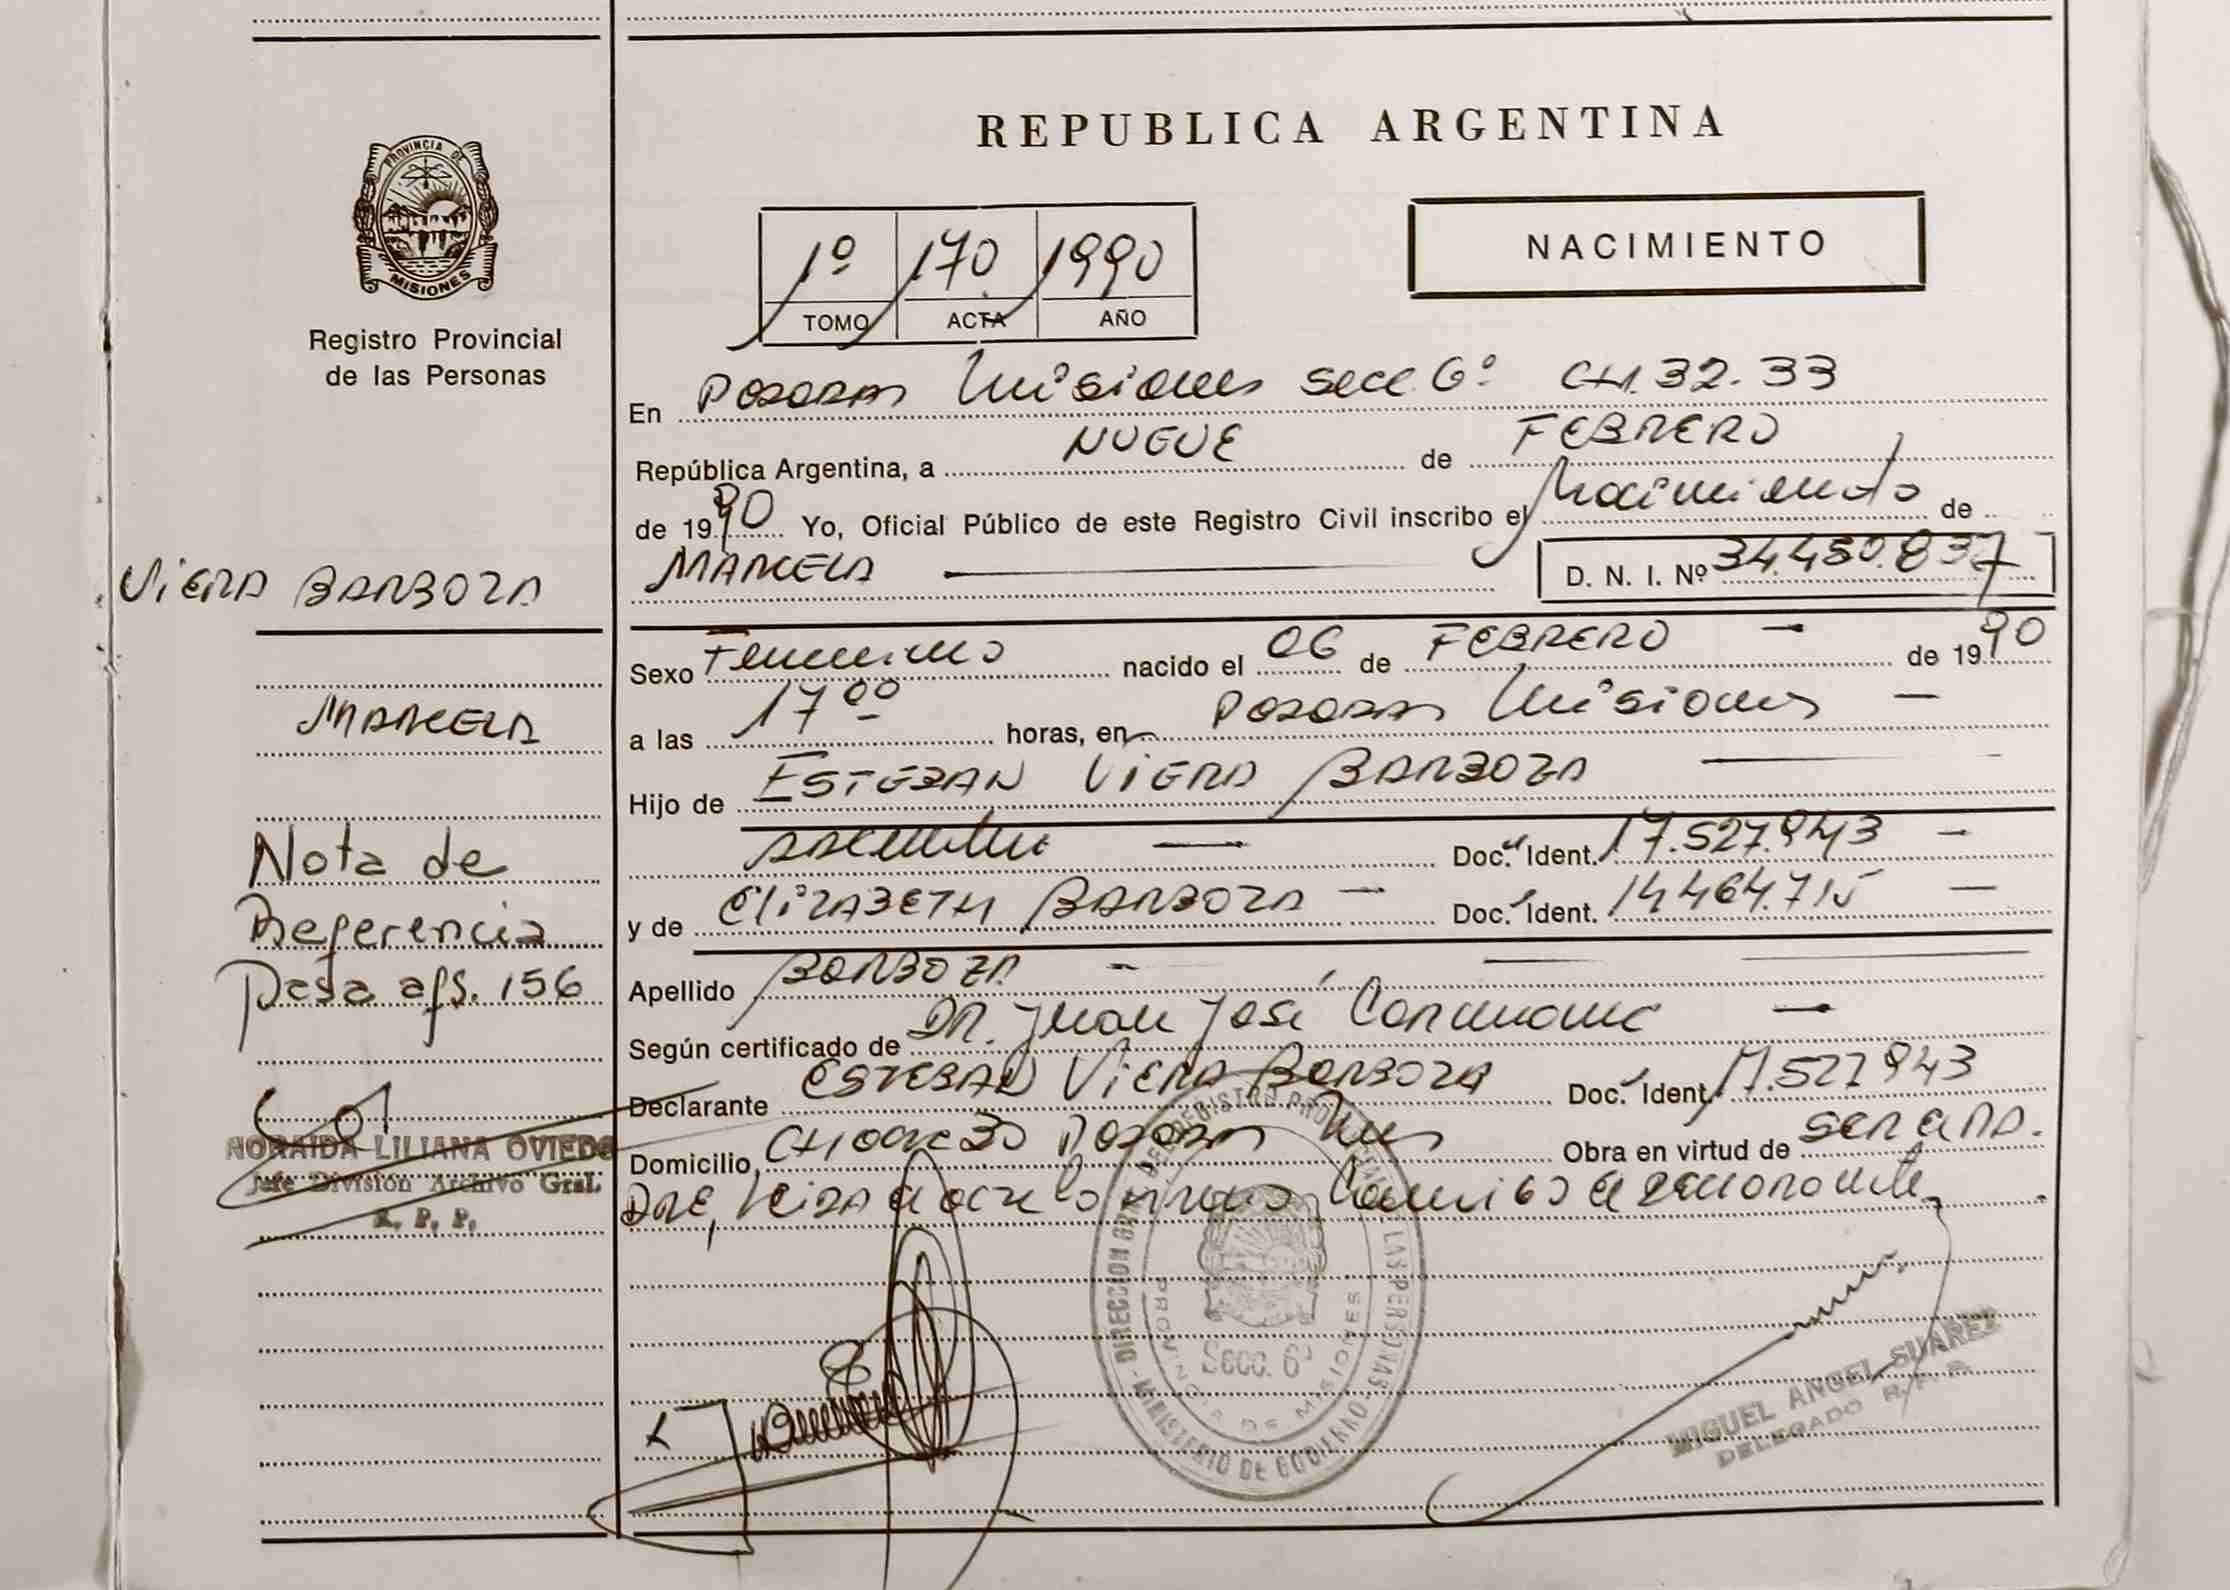 REPUBLICA ARGENTINA
PROVINCIA DE
MISIONES
Registro Provincial
de las Personas
1º 170 1990
TOMO ACTA AÑO
NACIMIENTO
En Posadas Misiones Secc. 6º CH. 32.33
República Argentina, a NUEVE de FEBRERO
de 1990 Yo, Oficial Público de este Registro Civil inscribo el Nacimiento de
MARCELA D. N. I. Nº 34.450.837
VIERA BARBOZA
Sexo Femenino nacido el 06 de FEBRERO de 1990
MARCELA
a las 17 00 horas, en Posadas Misiones
Hijo de ESTEBAN VIERA BARBOZA
Nota de
Referencia
Pasa a fs. 156
Doc. Ident. 17.527.943
y de ELIZABETH BARBOZA Doc. Ident. 14.464.715
Apellido BARBOZA
Según certificado de DR. Juan José
Declarante ESTEBAN VIERA BARBOZA Doc. Ident. 17.527.943
NORAIDA LILIANA OVIEDO
Jefe Division Archivo Gral.
R. P. P.
Domicilio, CHACRE 30 Posadas Mnes Obra en virtud de SER PA
DRE,
DIRECCION GRAL. DEL REGISTRO PROVINCIAL DE LAS PERSONAS
MINISTERIO DE GOBIERNO
PROVINCIA DE MISIONES
Secc. 6º
MIGUEL ANGEL SUAREZ
DELEGADO R. P. P.